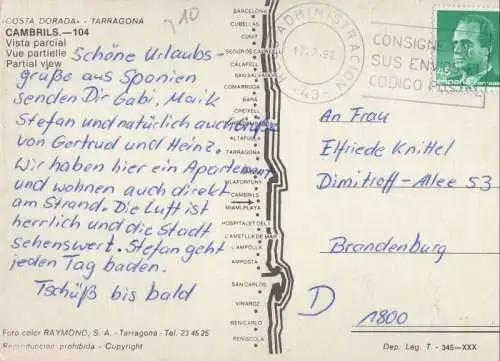 COSTA DORADA» - TARRAGONA
CAMBRILS.—104
Vista parcial
Vue partielle
Partial vjew
Schöne Urlaubs-
grüße aus Spanien
senden Dir Gabi, Maik
Stefan und natürlich auch Grüße
von Gertrud und Heinz.
Wir haben hier ein Apartement
und wohnen auch direkt
am Strand. Die Luft ist
herrlich und die Stadt
sehenswert. Stefan geht
jeden Tag baden.
Tschüß bis bald
Foto color RAYMOND, S. A. - Tarragona - Tel. 23 45 25
Reproduccion prohibida - Copyright
BARCELONA
CUBELLAS
CUNIT
SEGUR DE CALAFELL
CALAFELL
SAN SALVADOR
COMARRUGA
BARÁ
CREIXELL
ALTAFULLA
TARRAGONA
VILAFORTUNY
CAMBRILS
MIAMI-PLAYA
HOSPITALET DEL
L'AMETLLA DE MAR
L'AMPOLLA
AMPOSTA
SAN CARLOS
VINAROZ
BENICARLO
PEÑISCOLA
ADMINISTRACION
-43-
CONSIGNE
SUS ENVIOS
CODIGO POSTAL
45
España
An Frau
Elfriede Knittel
Dimitroff-Allee 53
Brandenburg
D 1800
Dep. Lég. T. - 345-XXX